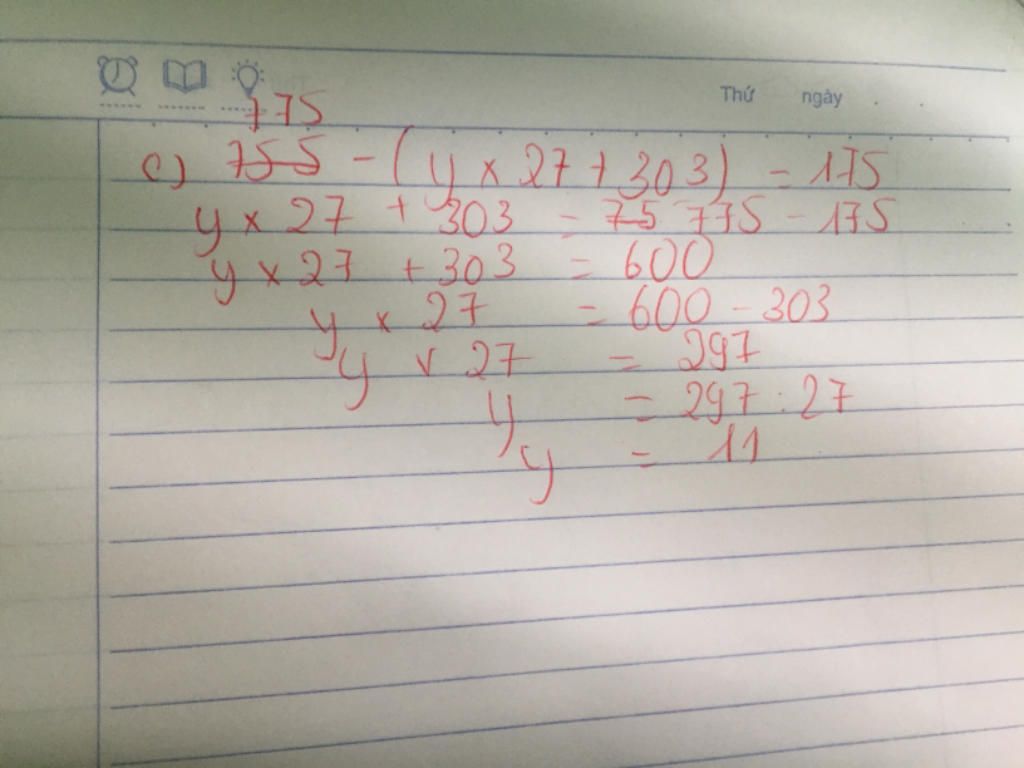 Thứ ngày
775
c) 755 - (y × 27 + 303) = 175
y × 27 + 303 = 75 775 - 175
y × 27 + 303 = 600
y × 27 = 600 - 303
y × 27 = 297
y = 297 : 27
y = 11